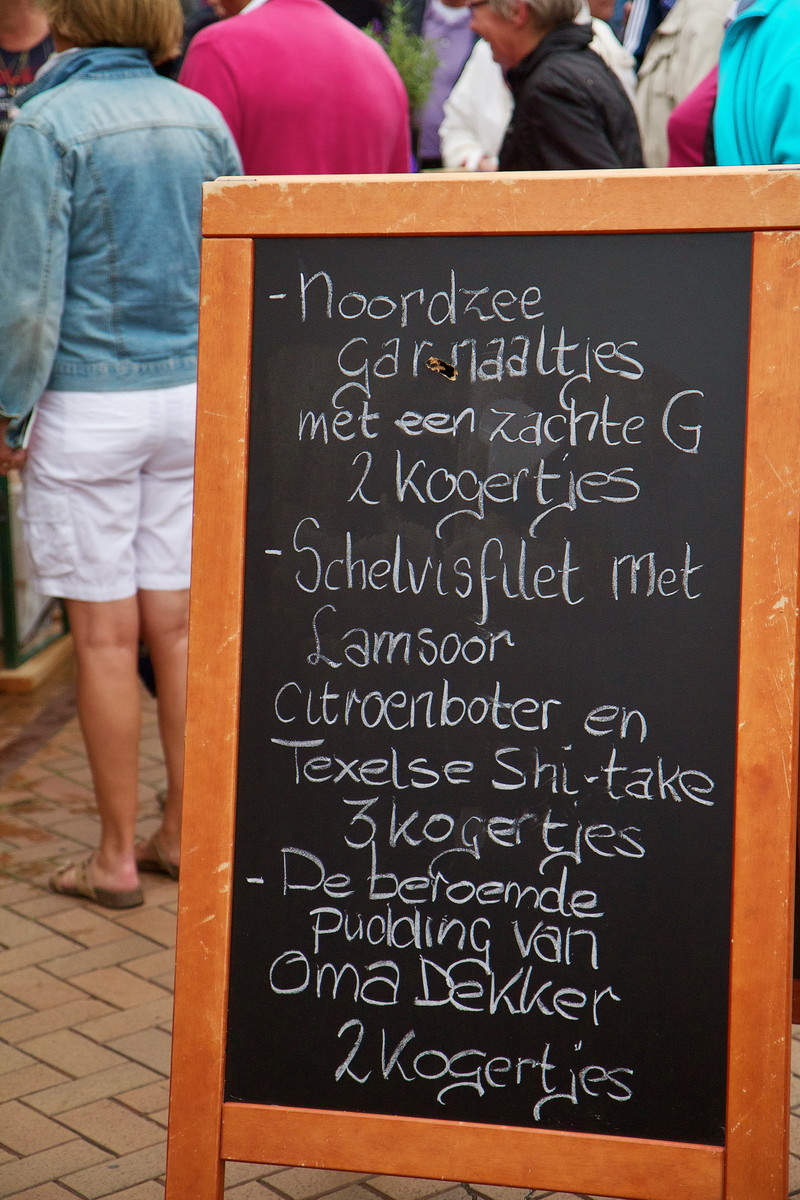 - Noordzee
garnaaltjes
met een zachte G
2 Kogertjes
- Schelvisfilet met
Lamsoor
Citroenboter en
Texelse Shi-take
3 kogertjes
- De beroemde
pudding van
Oma Dekker
2 Kogertjes